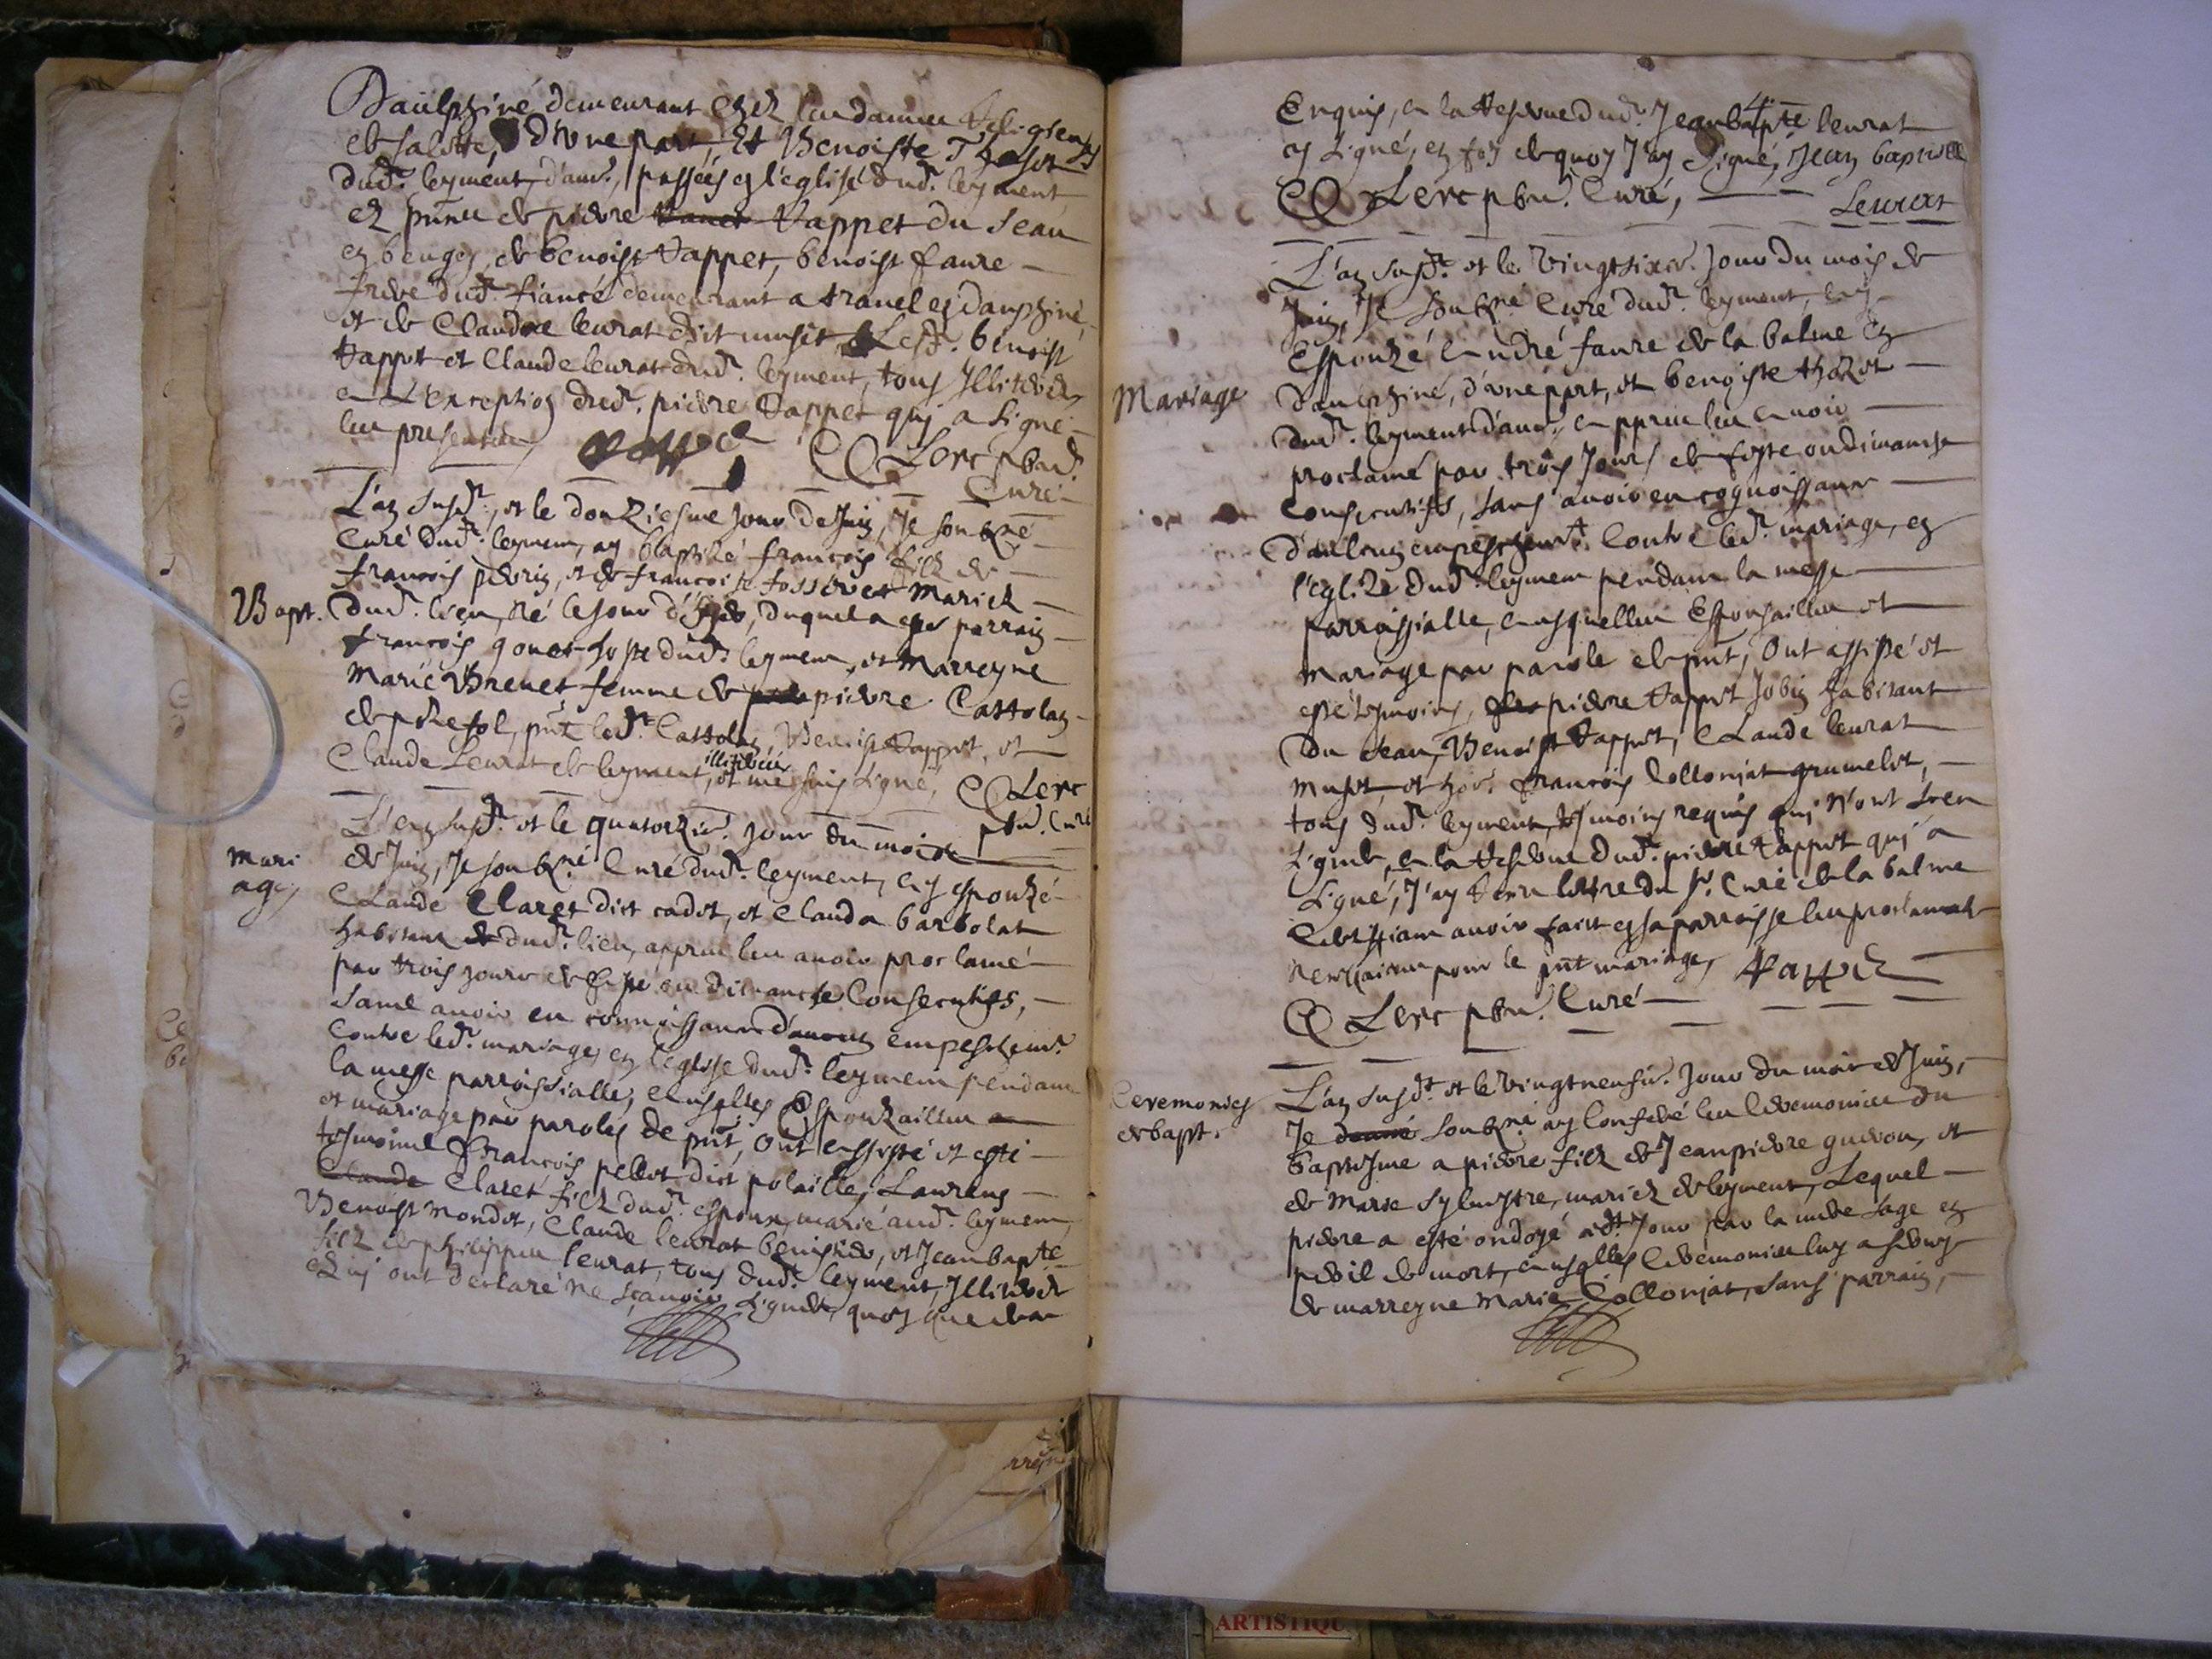 Daulphiné demeurant chez les dames Religieuses
de salette, d'vne part, Et Benoiste Thozot
dud.t leyment, d'autr., passées en l'eglise dud.t leyment
ez pñce de pierre Vappet du seau
en beugey, de benoist Vappet, benoist faure
frere dud.t fiancé demeurant a tranel en dauphiné,
et de Claude leurat dit muset Lesd. benoist
Vappet et Claude leurat dud.t leyment, tous Illiterés
a l'exception dud.t pierre Vappet qui a signé
les presentes, Vappet CLerc pbr.
Curé
L'an susd.t, et le douziesme jour de Juin, Je soubz.né
Curé dud.t leyment, ay baptizé françois filz de
françois perrin, et de françoise fosseret Mariez
Bapt.
dud.t lieu, né le jour d'hyer, duquel a esté parrain
françois gonet hoste dud.t leyment, et Marreyne
Marie Brenet femme de pierre Cattolan
de poresol, pñt led.t Cattolan, Benoist Vappet, et
Claude Leurat de leyment, illiterés, et me suis signé, CLerc
pbr. Curé
L'an susd.t et le quatorzie. jour du mois
Mari
age,
de Juin, Je soubz.né Curé dud.t leyment, ay espouzé
Claude Claret dict cadet, et Clauda barbolat
habitans dud.t lieu, appres les auoir proclamé
par trois jours de feste ou dimanche Consecutifs,
sans auoir eu connoissance d'aucun empeschem.t
Contre led.t mariage, en l'eglise dud.t leyment pendant
la messe parroissialle, ausqlles Espouzailles
et mariage par paroles de pñt, ont assisté et esté
tesmoins françois pellet dict polaille, Laurens
Claude Claret filz dud.t espoux, marié aud.t leyment,
Benoist Mondet, Claude leurat benistier, et Jean bap.te
filz de philippe leurat, tous dud.t leyment, Illiterés
et qui ont declaré ne sçauoir signer, quoy que de ce
Enquis, a la reserue dud.t Jean bapte leurat
4
cy signé, en foy de quoy J'ay signé, Jean baptiste
CLerc pbr. Curé, Leurat
L'an susd.t et le Vingtsixie. Jour du mois de
Juin, Je Soubz.né Curé dud.t leyment, ay
Espouzé André faure de la balme en
Mariage
Daulphiné, d'vne part, et benoiste thozot
dud.t leyment d'autr., appres les auoir
proclamé par trois Jours de feste ou dimanche
Consecutifs, sans auoir eu cognoissance
d'aulcun empeschem.t Contre led.t mariage, en
l'eglize dud.t leyment pendant la messe
parroissialle, ausquelles Espousailles et
Mariage par parole de pñt, Ont assisté et
esté tesmoins, pierre Vappet Jobin habitant
du seau, Benoist Vappet, Claude leurat
Muset, et françois Collonjat grumelet,
tous dud.t leyment, tesmoins requis qui n'ont sceu
signer, a la reserue dud.t pierre Vappet qui a
Signé, J'ay veu lettre du Sr. Curé de la balme
Certifiant auoir faict en sa parroisse les proclamats
necessaires pour le pñt mariage, Vappet
CLerc pbr. Curé
L'an susd.t et le Vingtneufie. Jour du mois de Juin,
Ceremonies
de bapt.
Je soubz.né ay Conferé les Ceremonies du
baptesme a pierre filz de Jeanpierre guerou, et
de Marie syluestre, mariez de leyment, Lequel
pierre a esté ondoyé aud.t jour par la mere sage en
peril de mort, ausqlles Ceremonies luy a seruy
de marreyne Marie Collonjat, sans parrain,
ARTISTIQU